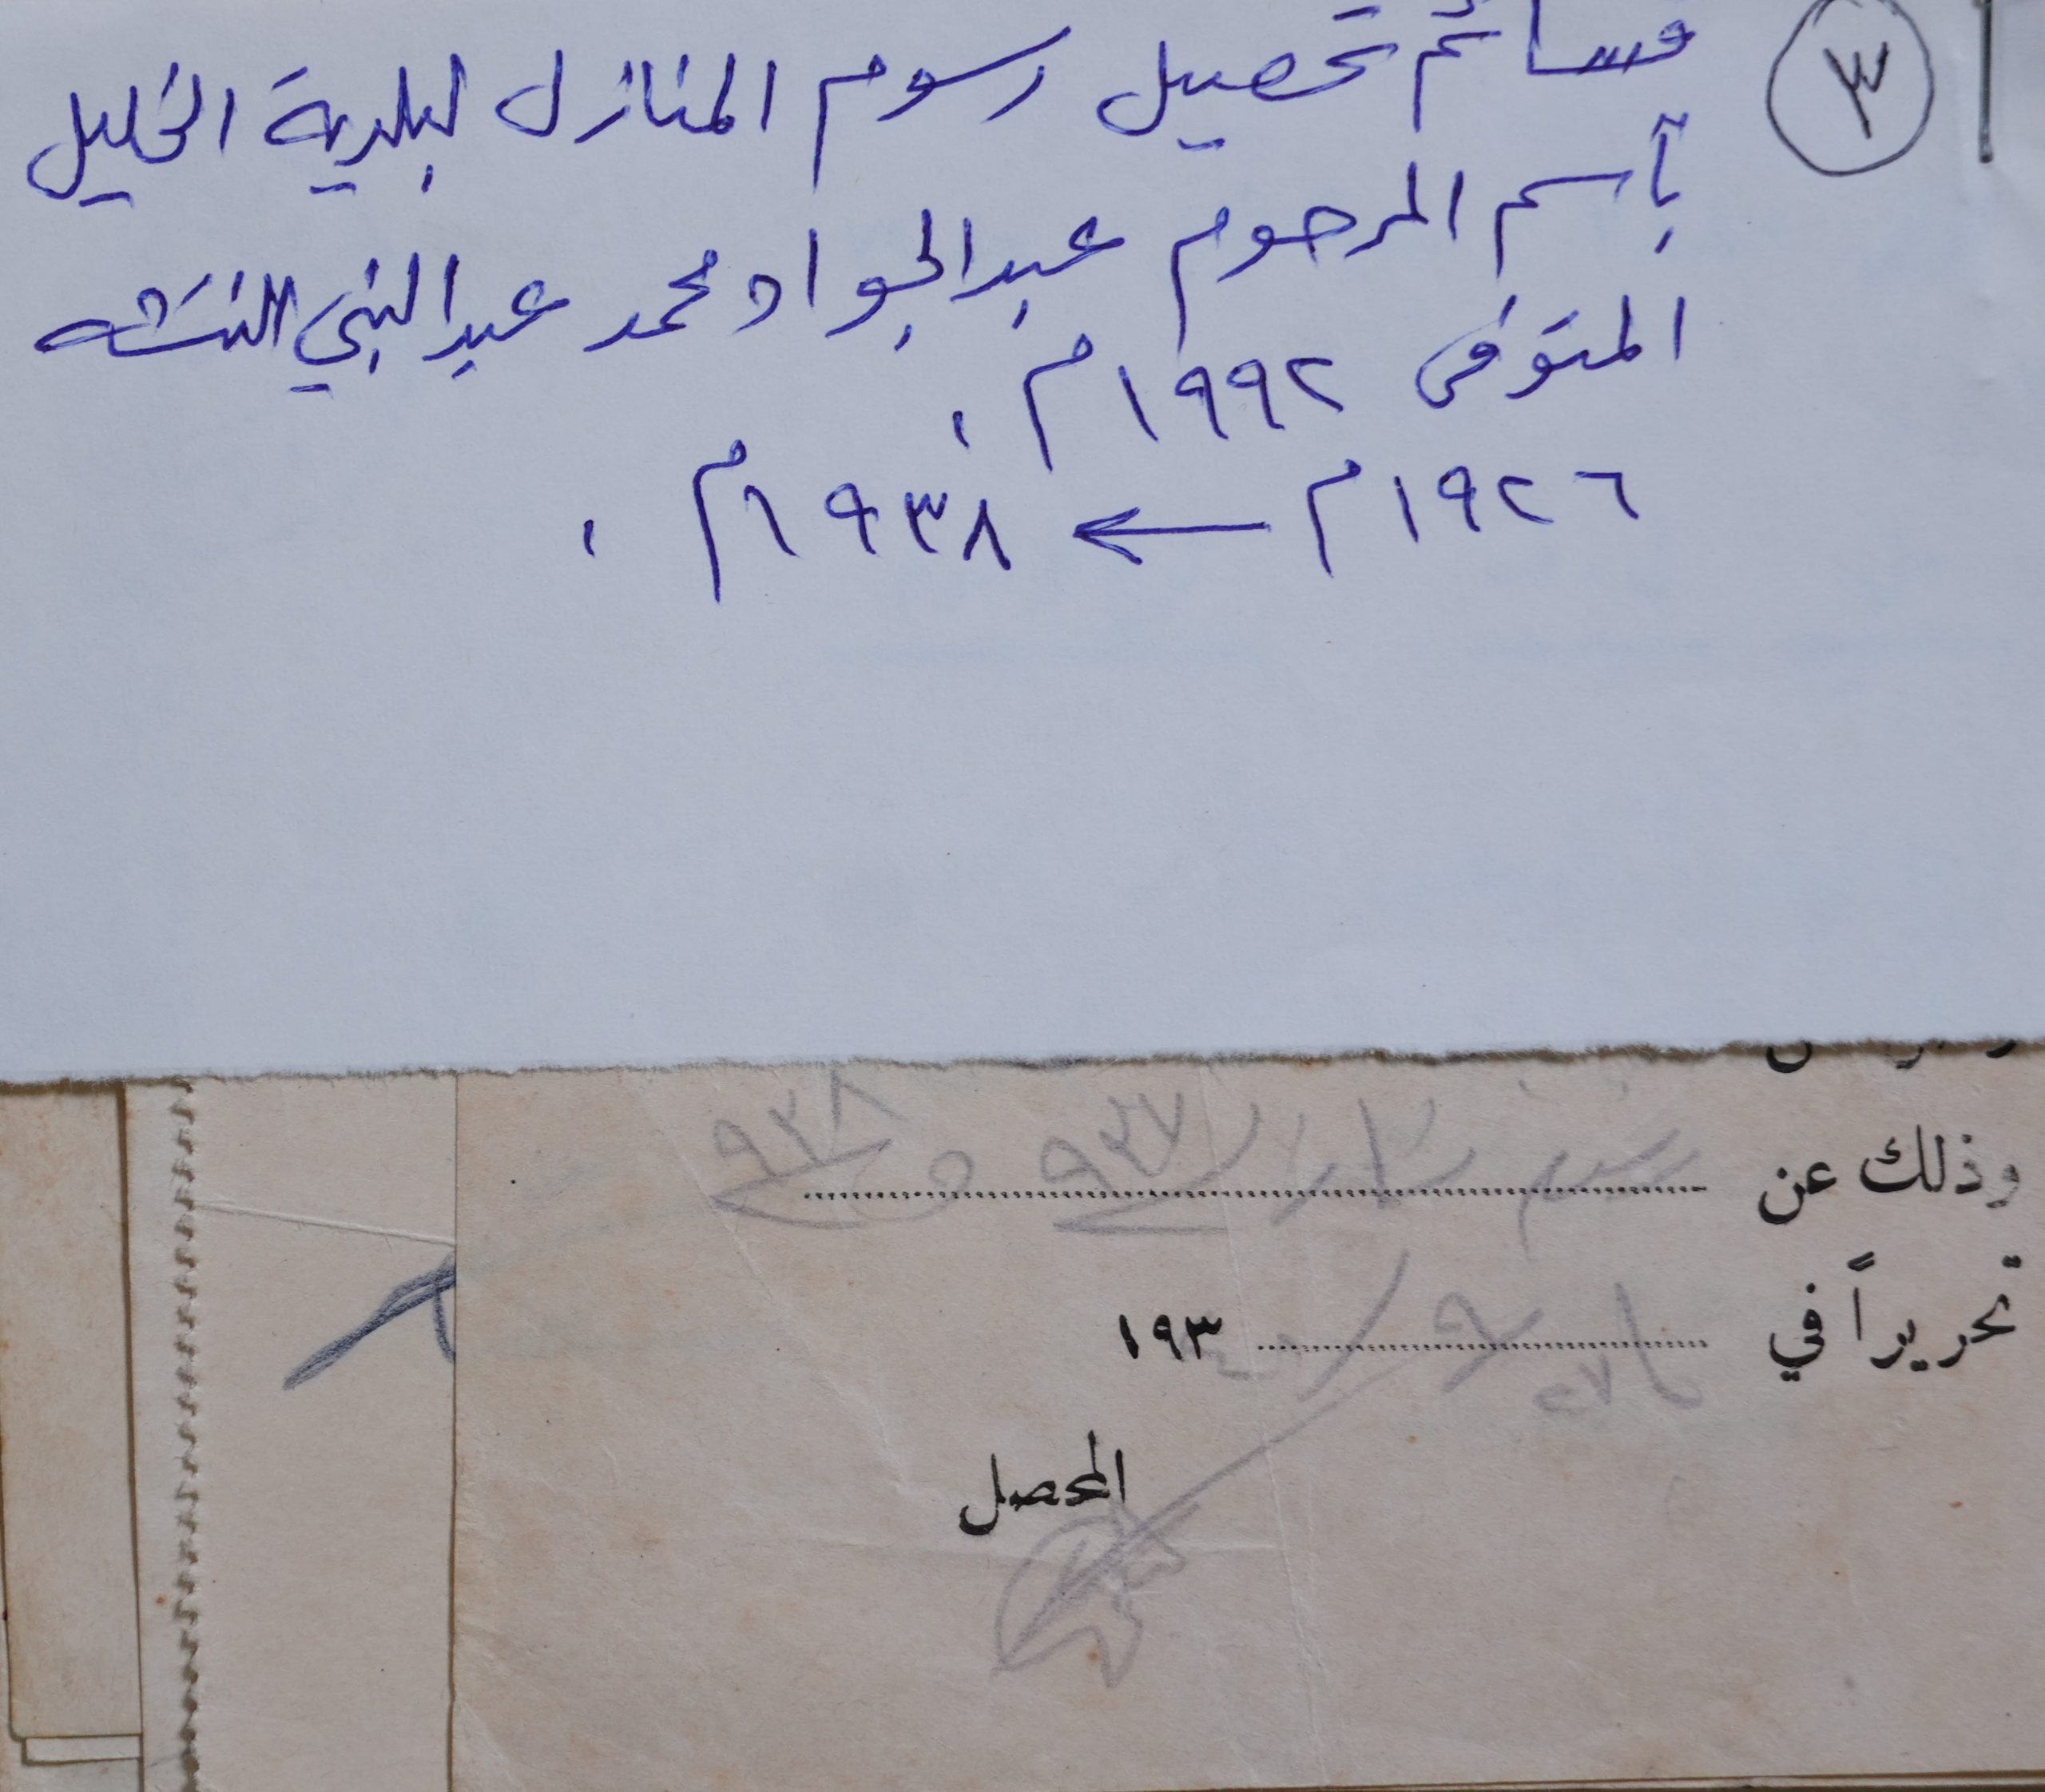 ٣
قسائم تحصيل رسوم المنازل لبلدية الخليل
بآسم المرحوم عبدالجواد محمد عبدالنبي النتشه
المتوفى ١٩٩٢م.
١٩٢٦م ← ١٩٣٨م.
وذلك عن ٩٣٧ ٩٣٨
تحريراً في ١٩٣
المحصل